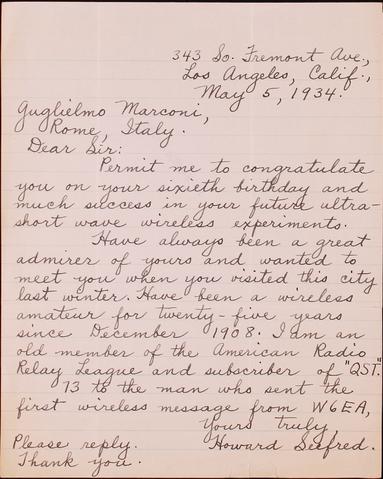 343 So. Fremont Ave.,
Los Angeles, Calif.,
May 5, 1934.
Guglielmo Marconi,
Rome, Italy.
Dear Sir:
Permit me to congratulate
you on your sixieth birthday and
much success in your future ultra-
short wave wireless experiments.
Have always been a great
admirer of yours and wanted to
meet you when you visited this city
last winter. Have been a wireless
amateur for twenty-five years
since December 1908. I am an
old member of the American Radio
Relay League and subscriber of "QST."
73 to the man who sent the
first wireless message from W6EA,
Yours truly,
Please reply. Howard Seefred.
Thank you.